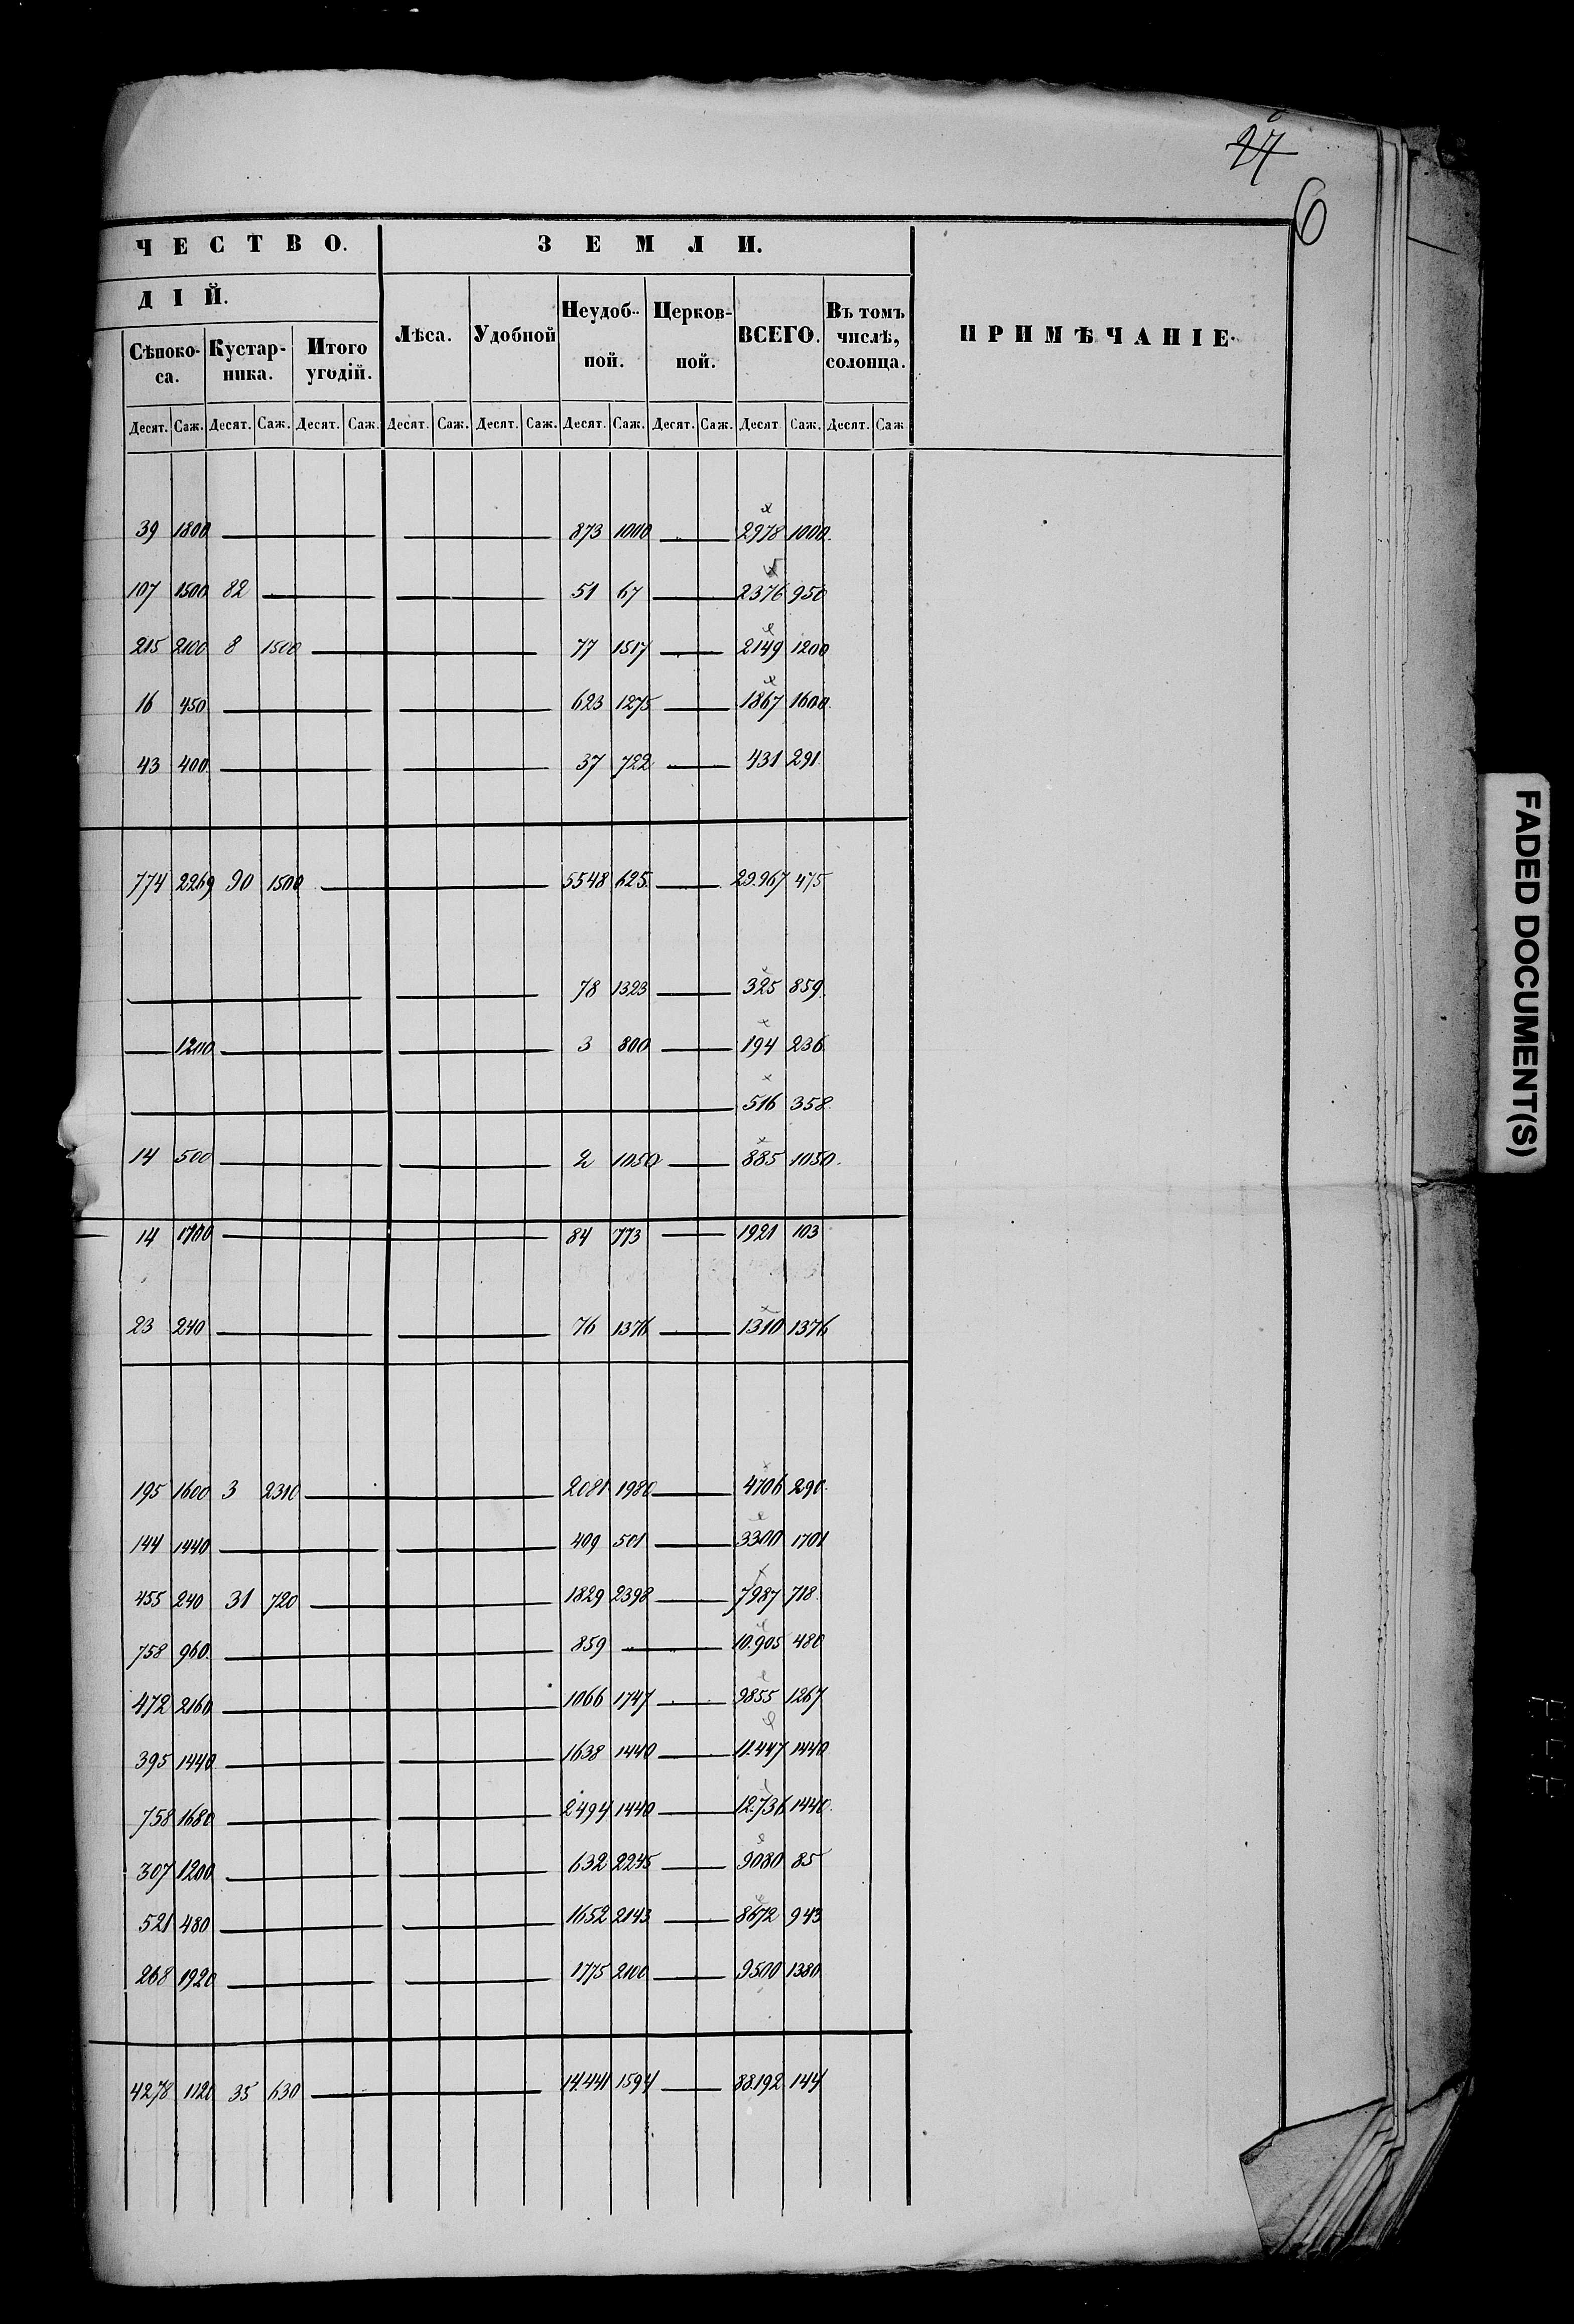 27
6
ЧЕСТВО. ЗЕМЛИ. ПРИМѢЧАНІЕ.
ДІЙ.
Сѣноко-са. Кустар-ника. Итого угодій. Лѣса. Удобной Неудоб-ной. Церков-ной. ВСЕГО. Въ томъ числѣ, солонца.
Десят. Саж. Десят. Саж. Десят. Саж. Десят. Саж. Десят. Саж. Десят. Саж. Десят. Саж. Десят Саж. Десят. Саж
39 1800 — — 873 1000 — 2978 1000.
107 1500 82 — — 51 67 — 2376 950
215 2100 8 1500 — — 77 1517 — 2149 1200
16 450 — — 623 1275 — 1867 1600.
43 400 — — 37 722 — 431 291.
774 2269 90 1500 — 5548 625. — 29.967 475
— — 78 1323 — 325 859.
— 1200 — — 3 800 — 194 236
— — 516 358.
14 500 — — 2 1050 — 885 1050.
14 1700 — 84 773 — 1921 103
23 240 — — 76 1376 — 1310 1376
195 1600 3 2310 — 2081 1980 — 4706 290.
144 1440 — — 409 501 — 3300 1701
455 240 31 720 — 1829 2398 — 7987 718.
758 960. — 859 — 10.905 480
472 2160 — — 1066 1747 — 9855 1267
395 1440 — — 1638 1440 — 11.447 1440
758 1680 — — 2494 1440 — 12.736 1440.
307 1200 — — 632 2245 — 9080 85
521 480 — — 1652 2143 — 8672 943
268 1920 — — 1775 2100 — 9500 1380
4278 1120 35 630 — 14.441 1594 — 88.192 144
FADED DOCUMENT(S)